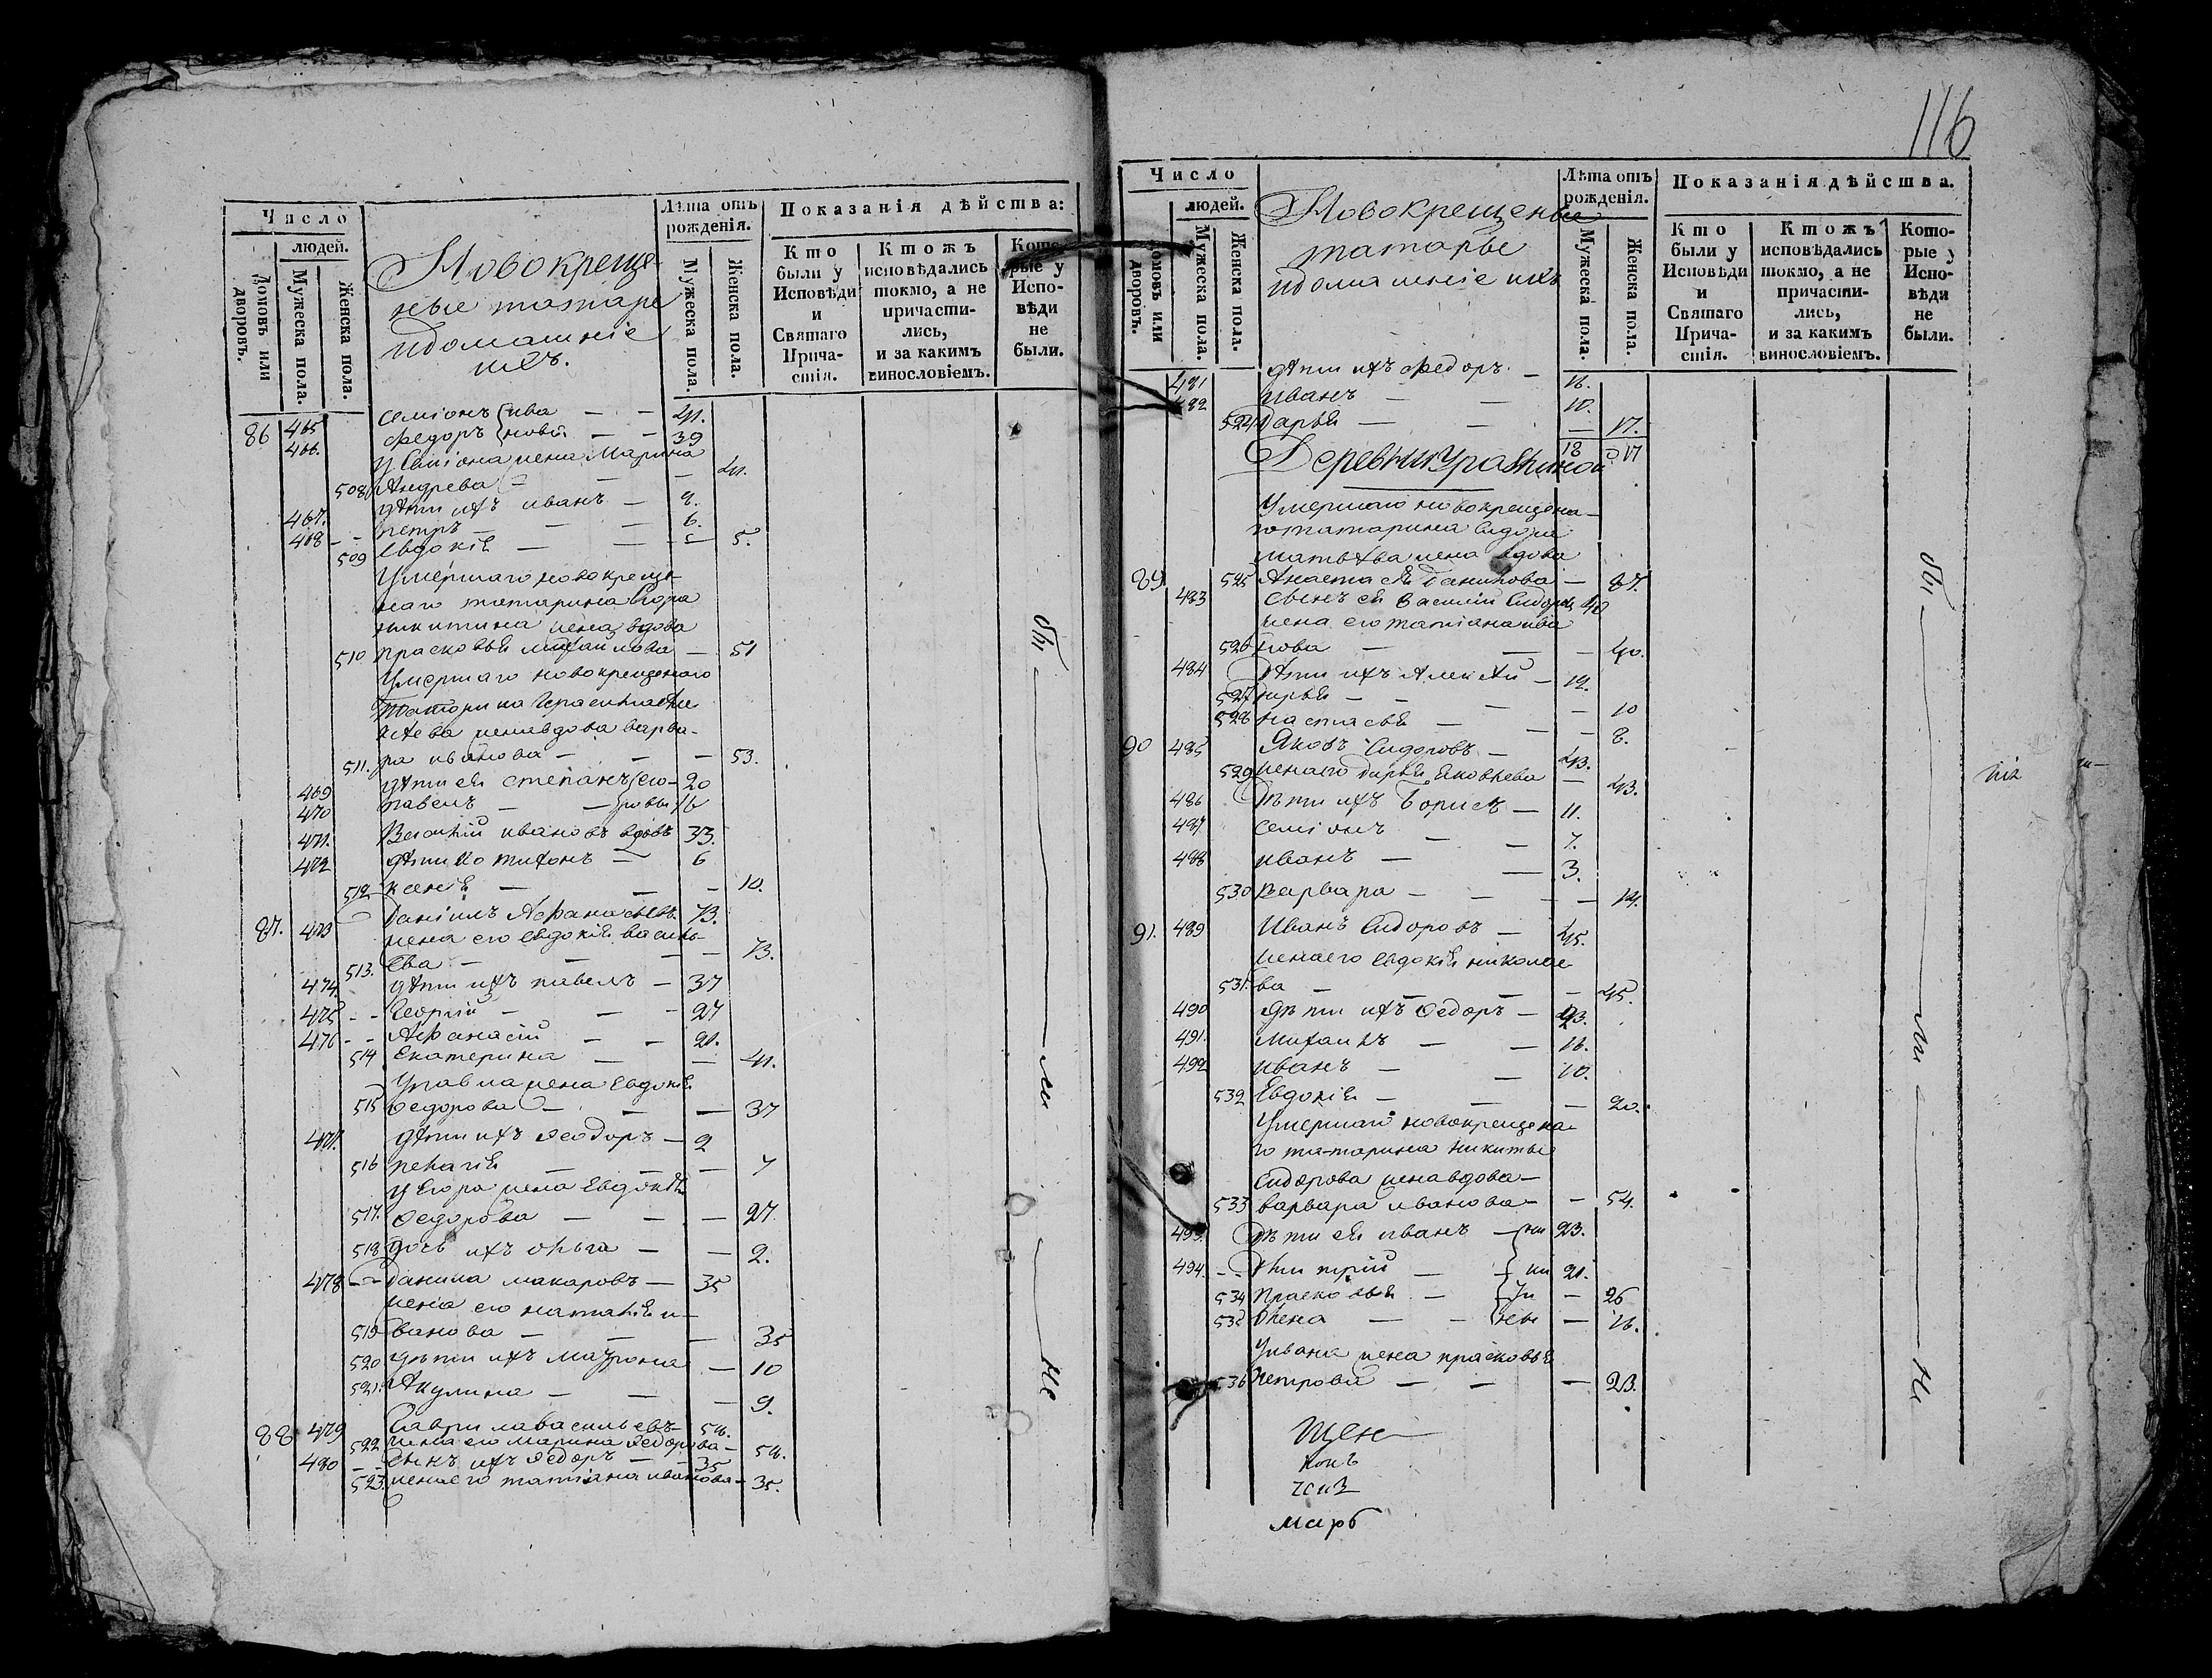 Число
людей.
Домовъ или дворовъ.
Мужеска пола.
Женска пола.
Новокреще-
ные татаре
идомашніе
ихъ.
Лѣта отъ рожденія.
Мужеска пола.
Женска пола.
Показанія дѣйства:
Кто были у Исповѣди и Святаго Прича-стія.
Ктожъ исповѣдались токмо, а не причасти-лись, и за какимъ винословіемъ.
Кото-рые у Испо-вѣди не были.
86 465 Семіонъ ива — — 41.
466. Федоръ новы — — 39
У Семіона жена Марина
508 Андрева — — — 41.
467. дѣти ихъ иванъ — 8.
468 — — петръ — — — 6.
509 Евдокія — — — 5.
Умершаго новокреще-
наго татарина Егора
никитина жена вдова
510 прасковья михайлова — 51
Умершаго новокрещенаго
Татарина
жена вдова варва-
511. ра иванова — — — 53.
469 дѣти ея степанъ 20
470 павелъ — — 16
471. Василій ивановъ вдовъ 33.
472 дѣти его тихонъ — 6
512 ксенія — — — 10.
87. 473 Даніилъ Афанасьевъ 73.
жена его евдокія василь-
513. ева — — — — 73.
474 дѣти ихъ павелъ — 37
475 — — Георгій — — — 27
476 — — Афанасій — — 21.
514 Екатерина — — 41.
У павла жена Евдокія
515 Ѳедорова — — — 37
477. дѣти ихъ Ѳеодоръ — 2
516 пелагія — — — 7
У Егора жена Евдокія
517. Ѳедорова — — — 27.
518 дочь ихъ ольга — — 2.
478 — — Данила макаровъ — 35
жена его наталія и-
519 ванова — — — 35
520 дѣти ихъ Матрона — 10
521. Акулина — — — 9.
88 479 Гаврила васильевъ 58.
522 жена его марина Ѳедорова — 58.
480 — — сынъ ихъ Ѳедоръ — — 35
523. жена его татіана иванова — 35.
бы — ли — не
116
Число
людей.
Домовъ или дворовъ.
Мужеска пола.
Женска пола.
Новокрещеные
татарье
идомашніе ихъ
Лѣта отъ рожденія.
Мужеска пола.
Женска пола.
Показанія дѣйства.
Кто были у Исповѣди и Святаго Прича-стія.
Ктожъ исповѣдались токмо, а не причасти-лись, и за какимъ винословіемъ.
Кото-рые у Испо-вѣди не были.
481 дѣти ихъ Федоръ — 16.
482 иванъ — — 10.
524 Дарья — — — 17.
Деревни Урашкиной
Умершаго новокрещена-
го татарина Сидора
матвѣва жена вдова
89. 525 Анастасія Данилова — 87.
483 сынъ ея Василій Сидоровъ 40
жена его татіана ива
526 нова — — — 40.
484 Дѣти ихъ Алексѣй — 12.
527 Дарья — — — — 10
528 настасья — — — 8.
90 485 Яковъ Сидоровъ — 43.
529 жена его Дарья Яковлева — 43.
486 Дѣти ихъ Борисъ — 11.
487 Семіонъ — — 7.
488 иванъ — — 3.
530 Варвара — — — — 14.
91. 489 Иванъ Сидоровъ — 45.
жена его евдокія николае
531. ва — — — — 45.
490 дѣти ихъ Ѳедоръ — 23.
491. михаилъ — — 16.
492 иванъ — — 10.
532 Евдокія — — — 20.
Умершаго новокрещена-
го татарина никиты
Сидорова жена вдова —
533 варвара иванова — — 54.
493. Дѣти ея иванъ — ни 23.
494. — — Дмитрій — — ки 21.
534 Прасковья — ти — 26
535 Олена — — ны — 16.
У ивана жена прасковья
536 Петрова — — — 23.
бы — ли — не